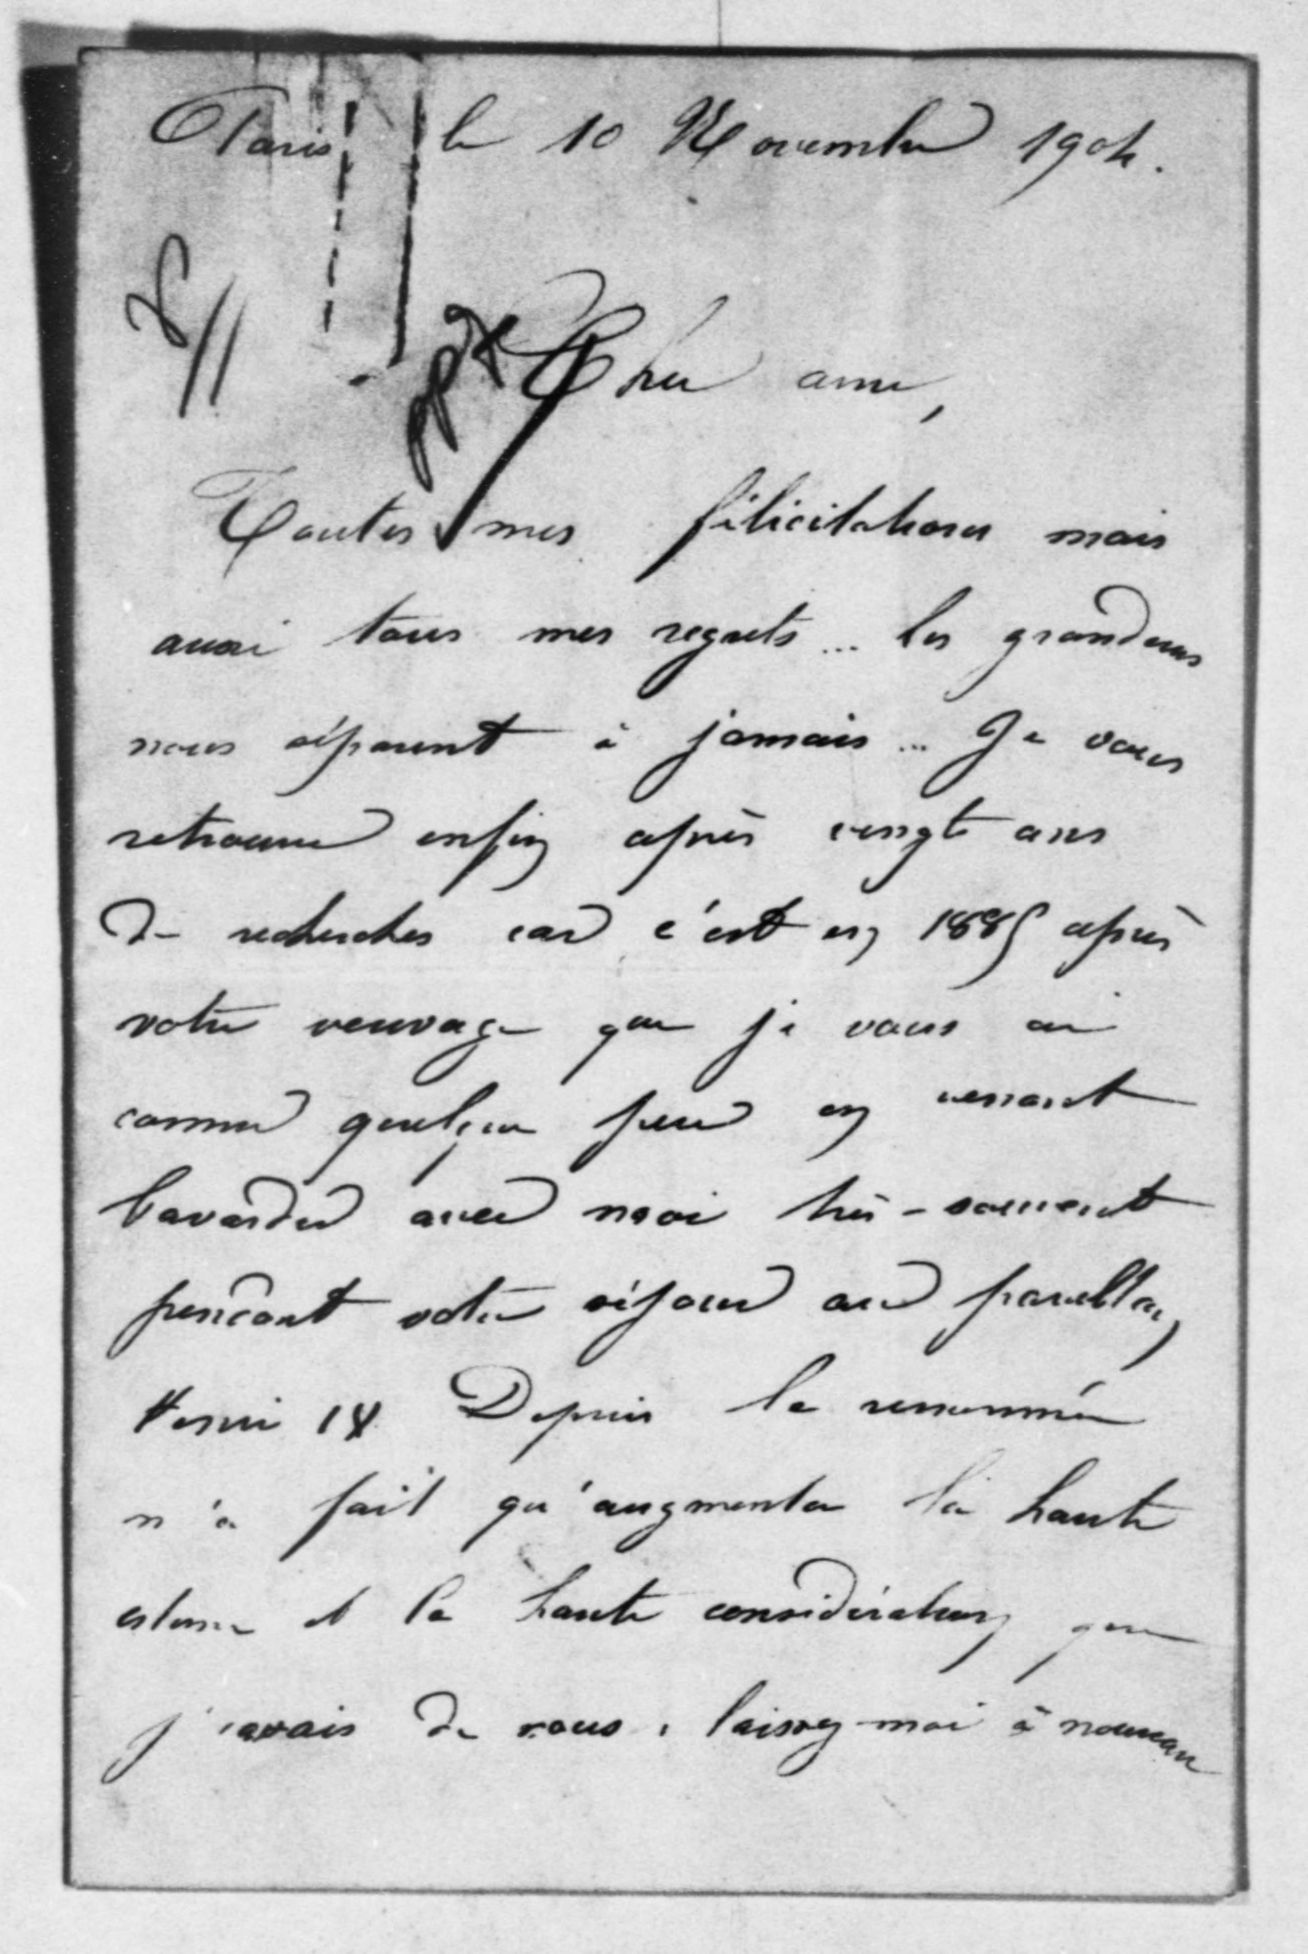 Paris le 10 Novembre 1904.
Cher ami,
Toutes mes félicitations mais
aussi tous mes regrets... les grandeurs
nous séparent à jamais... Je vous
retrouve enfin après vingt ans
de recherches car c'est en 1885 après
votre veuvage que je vous ai
connu quelque peu en venant
bavarder avec moi très-souvent
pendant votre séjour au pavillon
Henri IV Depuis la renommée
n'a fait qu'augmenter la haute
estime et la haute considération que
j'avais de vous, laissez-moi à nouveau